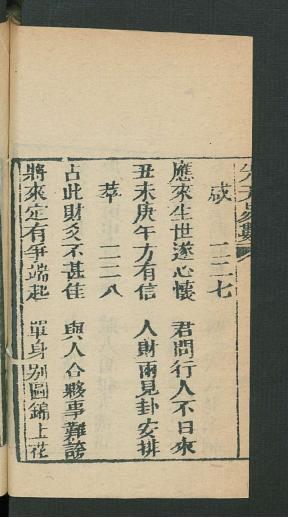 先天易數
咸 一二一七
應來生世遂心懷 君問行人不日來
丑未庚午方有信 人財兩見卦安排
萃 一二一八
占此財爻不甚佳 與人合夥事難誇
將來定有爭端起 單身別圖錦上花